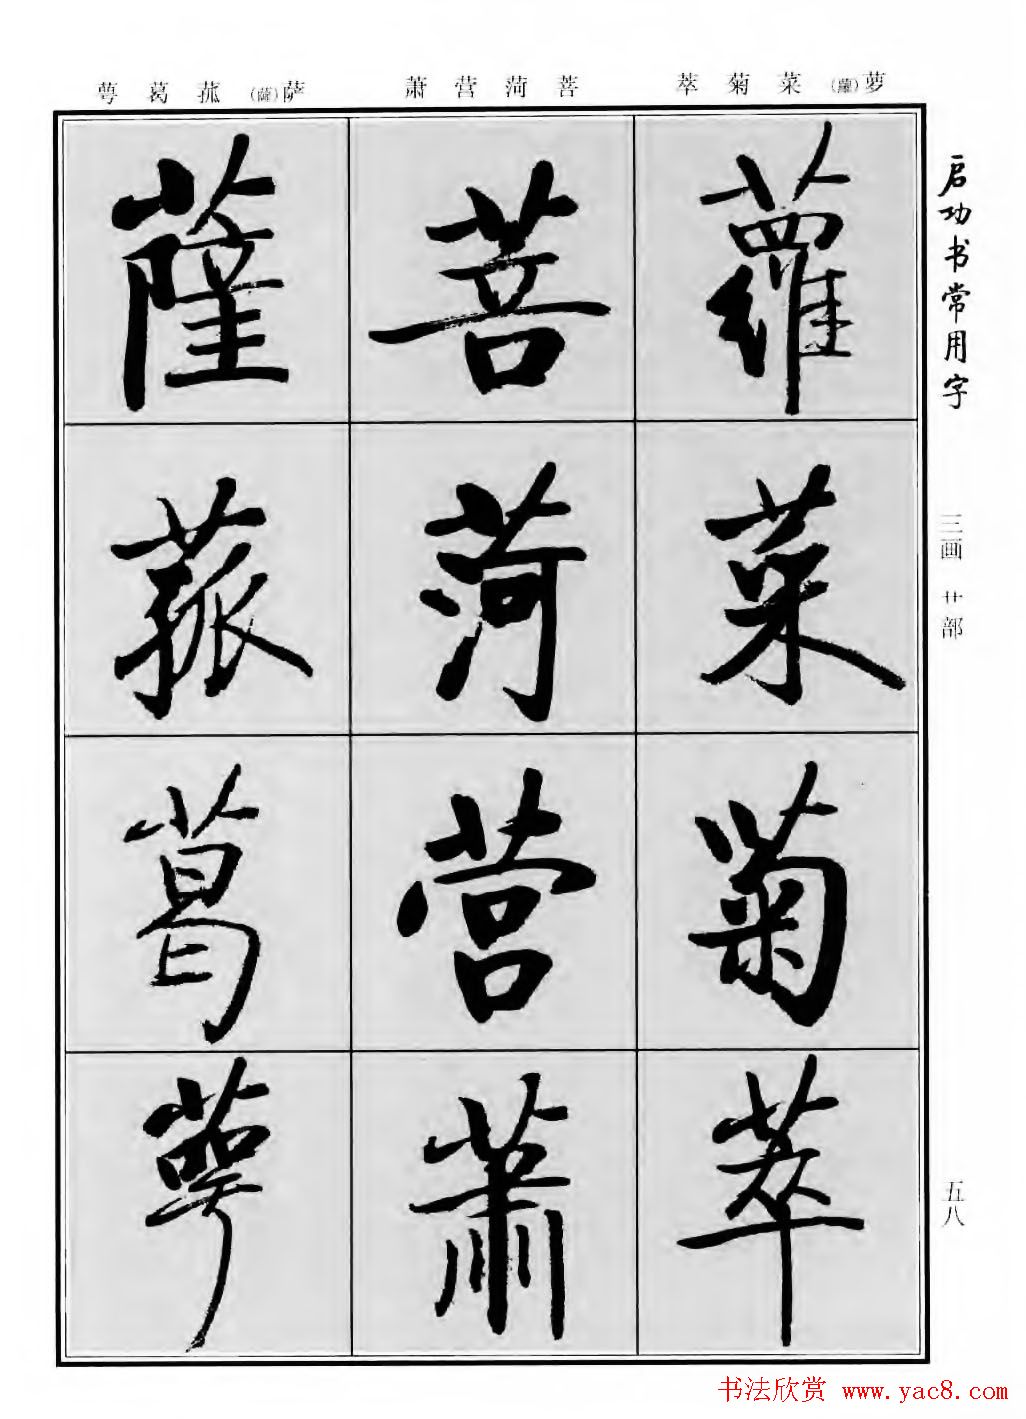 萼葛菰(薩)萨 萧营菏菩 萃菊菜(蘿)萝
启功书常用字
三画 艹部
五八
蘿
菜
菊
萃
菩
菏
营
蕭
薩
菰
葛
萼
书法欣赏 www.yac8.com